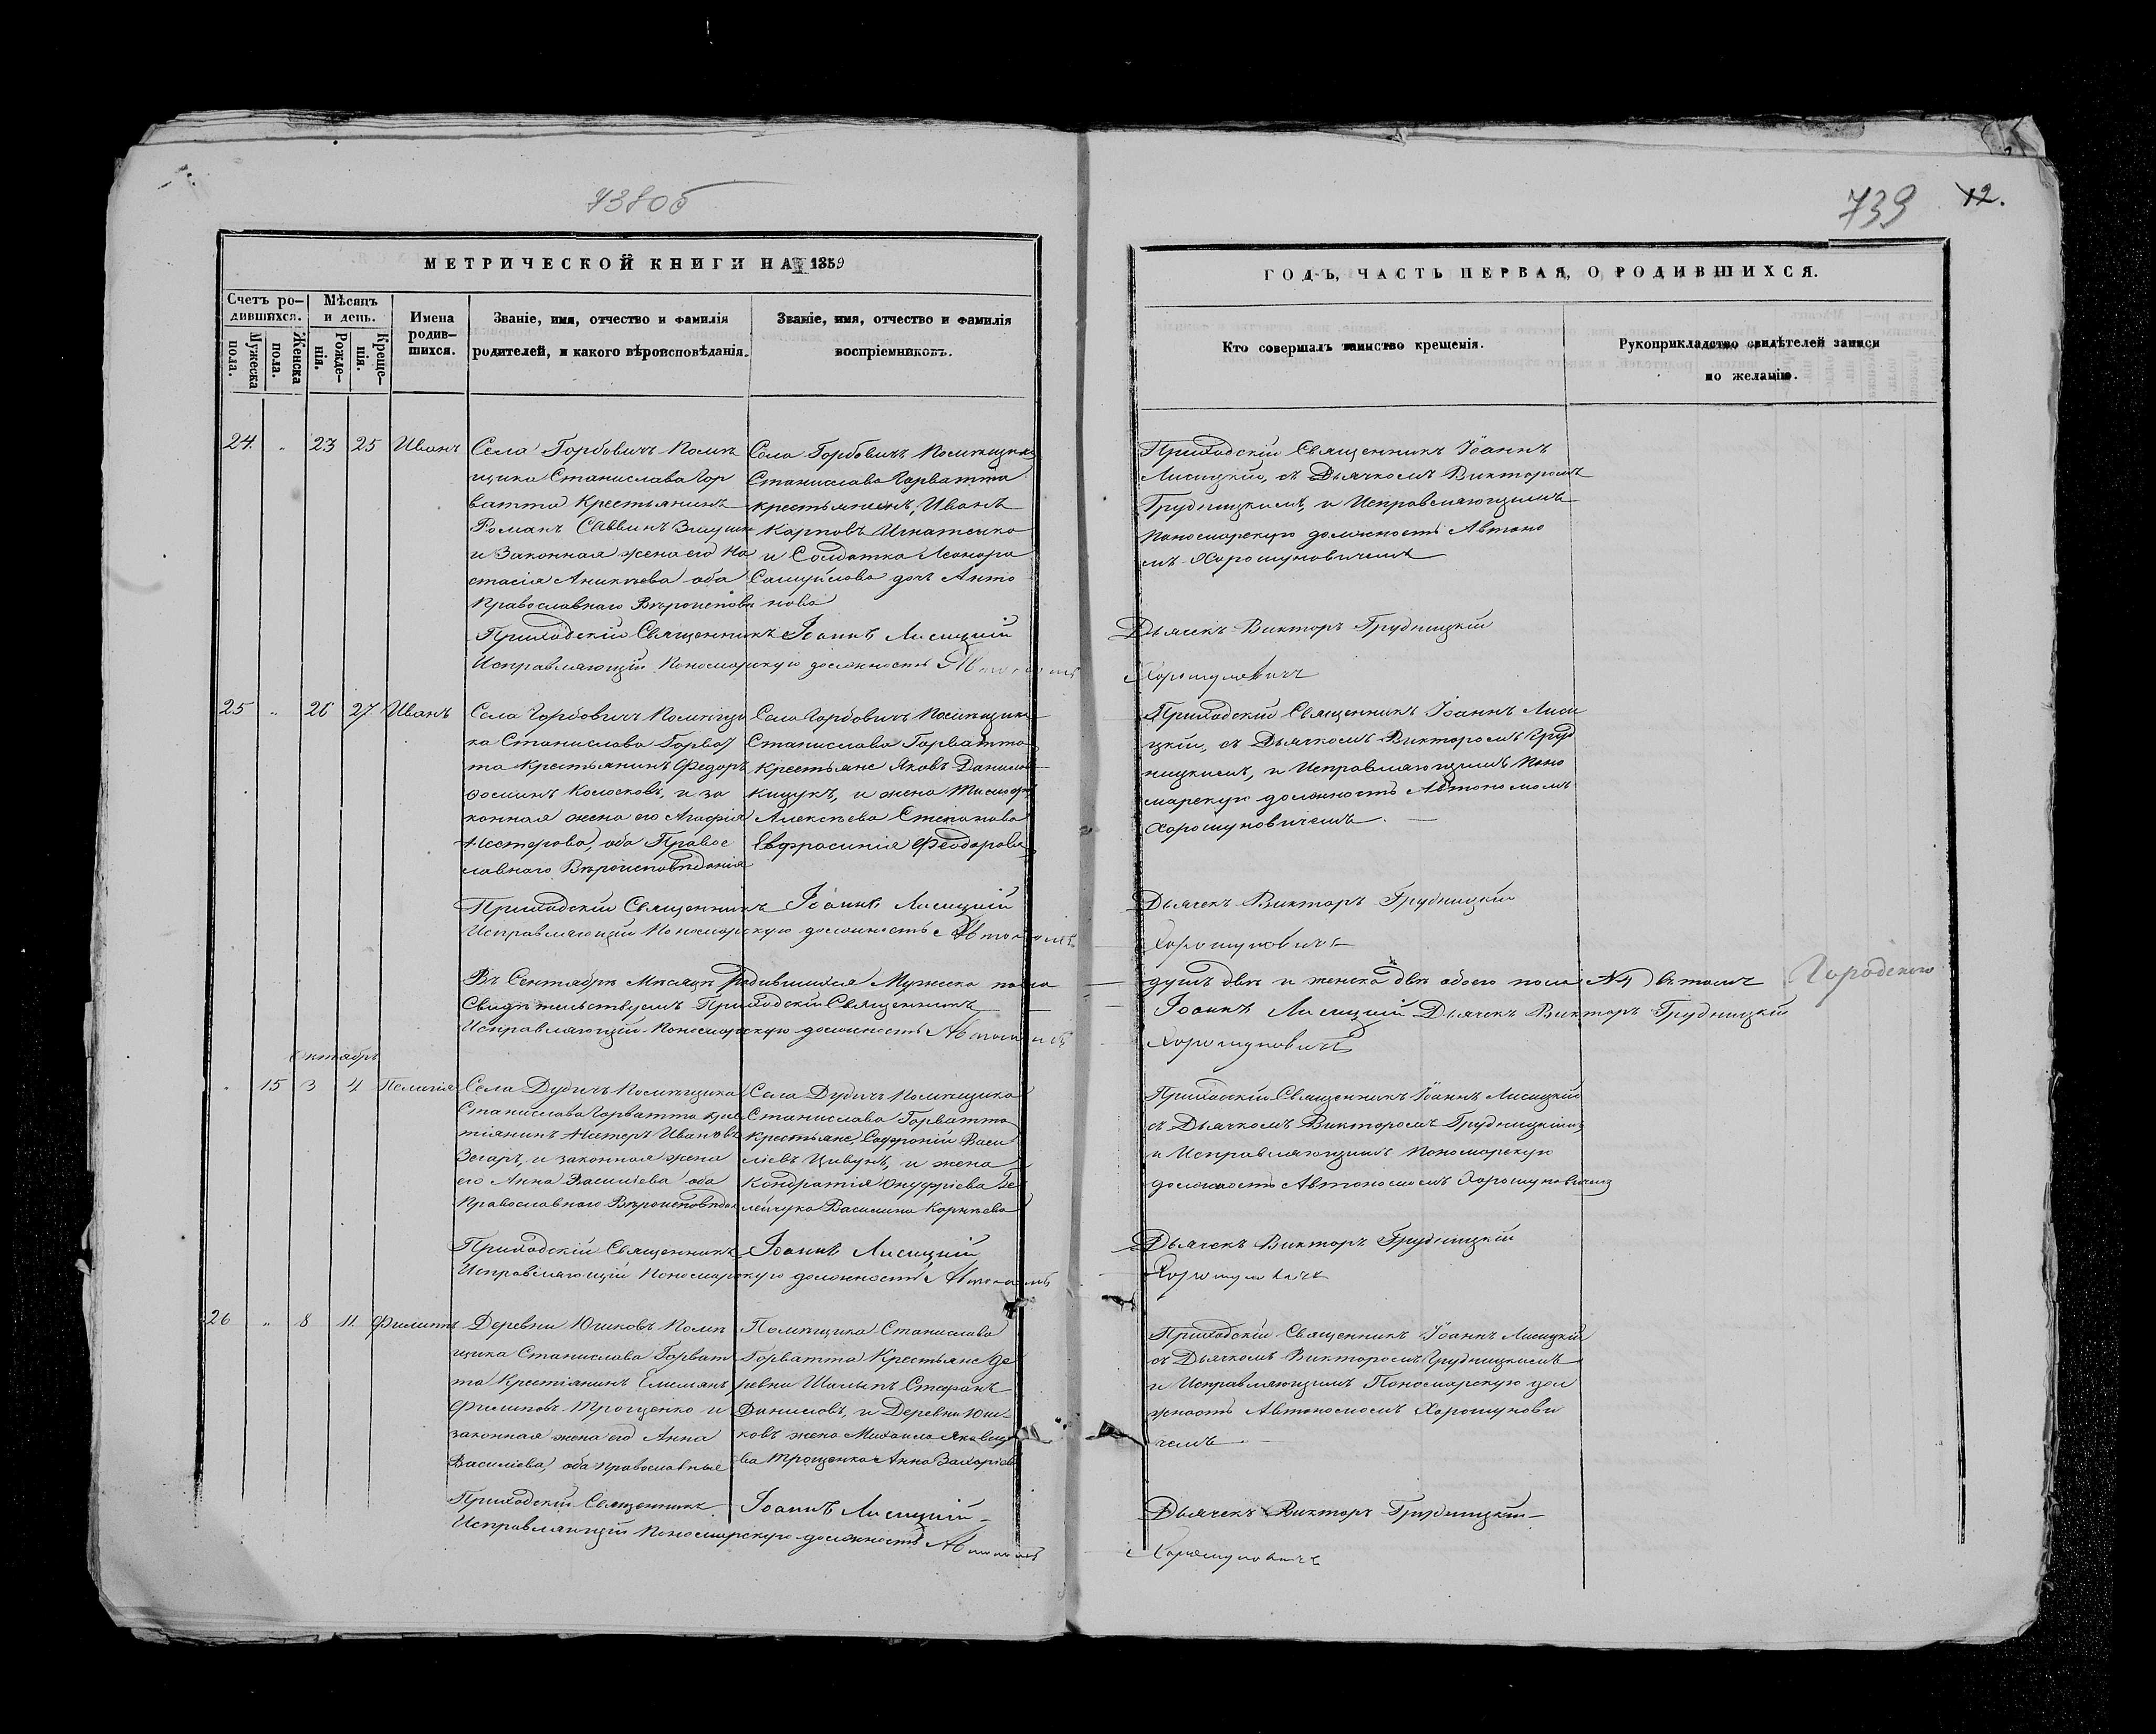 738об
739 12.
МЕТРИЧЕСКОЙ КНИГИ НА 1859
ГОДЪ, ЧАСТЬ ПЕРВАЯ, О РОДИВШИХСЯ.
Счетъ ро-
дившихся.
Мужеска
пола.
Женска
пола.
Мѣсяцъ
и день.
Рожде-
нія.
Креще-
нія.
Имена
родив-
шихся.
Званіе, имя, отчество и фамилія
родителей, и какого вѣроисповѣданія.
Званіе, имя, отчество и фамилія
воспріемниковъ.
Кто совершалъ таинство крещенія.
Рукоприкладство свидѣтелей записи
по желанію.
24. „ 23 25 Иванъ
Села Горбовичъ Помѣ
щика Станислава Гор
ватта Крестьянинъ
Романъ Саввинъ
и Законная жена его На
стасія Аникѣева оба
Православнаго Вѣроисповѣ
Села Горбовичъ Помѣщика
Станислава Горватта
крестьянинъ, Иванъ
Карповъ Игнатенко
и Солдатка Леонора
Самуйлова дочь Анто
нова
Приходскій Священникъ Іоаннъ
Лисицкій, съ Дьячкомъ Викторомъ
Грудницкимъ, и Исправляющимъ
Пономарскую должность Автоно
мъ Хорошуновичемъ
Приходскій Священникъ Іоаннъ Лисицкій
Дьячекъ Викторъ Грудницкій
Исправляющій Пономарскую должность Автономъ
Хорошуновичъ
25 „ 26 27 Иванъ
Села Горбовичъ Помѣщи
ка Станислава Горват
та Крестьянинъ Федоръ
Фоминъ Колосковъ, и за
конная жена его Агафія
Нестерова, оба Правос
лавнаго Вѣроисповѣданія
Села Горбовичъ Помѣщика
Станислава Горватта
Крестьяне Яковъ Данилов
Кицукъ, и жена Тимофея
Алексѣева Степанова
Евфросинія Феодорова
Приходскій Священникъ Іоаннъ Лиси
цкій, съ Дьячкомъ Викторомъ Груд
ницкимъ, и Исправляющимъ Поно
марскую должность Автономомъ
Хорошуновичемъ.
Приходскій Священникъ Іоаннъ Лисицкій
Дьячекъ Викторъ Грудницкій
Исправляющій Пономарскую должность Автономъ
Хорошуновичъ
Въ Сентябрѣ Мѣсяцѣ родившихся Мужеска пола
душъ двѣ и женска двѣ обоего пола №4 въ томъ
Городского
Свидѣтельствуемъ Приходскій Священникъ
Іоаннъ Лисицкій Дьячекъ Викторъ Грудницкій
Исправляющій Пономарскую должность Автономъ
Хорошуновичъ
Октябрь
„ 15 3 4 Пелагія
Села Дудичъ Помѣщика
Станислава Горватта крес
тіянинъ Нестеръ Ивановъ
и законная жена
его Анна Василіева оба
Православнаго Вѣроисповѣдан
Села Дудичъ Помѣщика
Станислава Горватта
Крестьяне, Софроній Васи
ліевъ Цивунъ, и жена
Кондратія Онуфріева Ге
лейчука Василина Корнѣева
Приходскій Священникъ Іоаннъ Лисицкій
съ Дьячкомъ Викторомъ Грудницкимъ,
и Исправляющимъ Пономарскую
должность Автономомъ Хорошуновичемъ
Приходскій Священникъ Іоаннъ Лисицкій
Дьячекъ Викторъ Грудницкій
Исправляющій Пономарскую должность Автономъ
Хорошуновичъ
26 „ 8 11 Филиппъ
Деревни Юшковъ Помѣ
щика Станислава Горват
та Крестіянинъ Емельянъ
Филиповъ Трощенко и
законная жена его Анна
Василіева, оба православные
Помѣщика Станислава
Горватта Крестьяне де
ревни Стефанъ
Даниловъ, и Деревни Юш-
ковъ жена Михаила Яковле
ва Трощенка Анна Захаріева
Приходскій Священникъ Іоаннъ Лисицкій
съ Дьячкомъ Викторомъ Грудницкимъ
и Исправляющимъ Пономарскую дол
жность Автономомъ Хорошунови
чемъ
Приходскій Священникъ Іоаннъ Лисицкій
Дьячекъ Викторъ Грудницкій
Исправляющій Пономарскую должность Автономъ
Хорошуновичъ